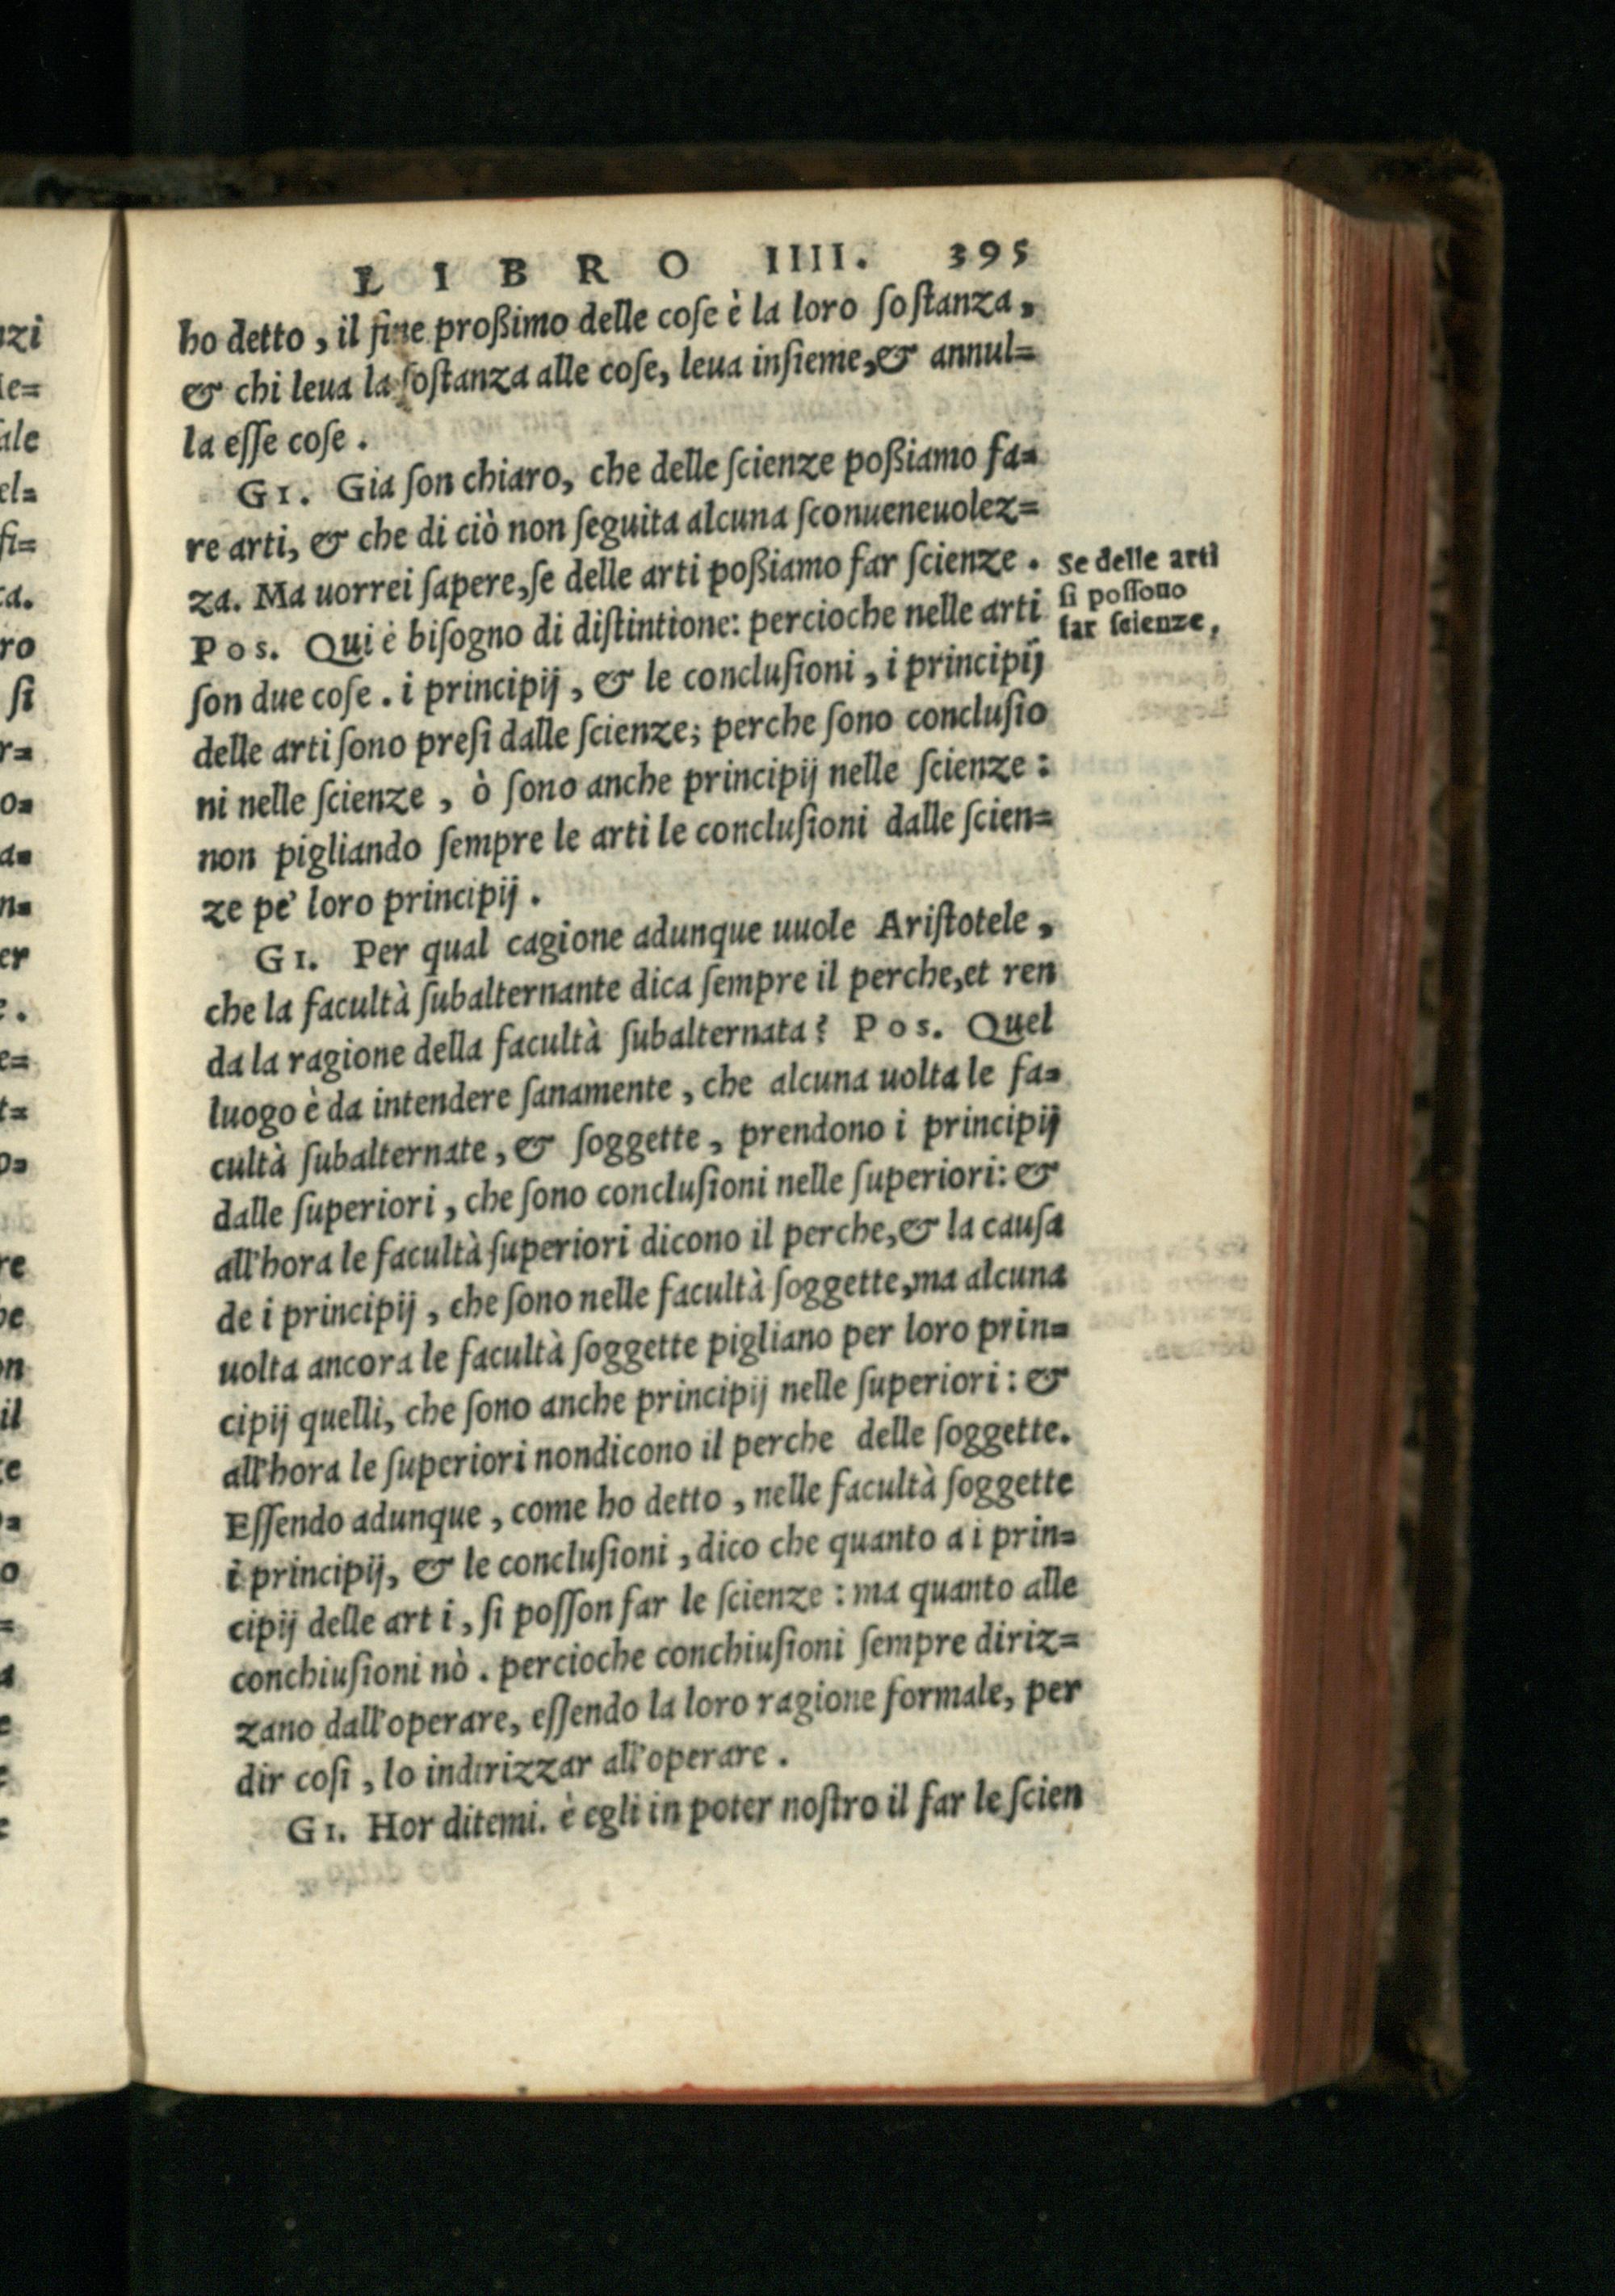 LIBRO IIII. 395
ho detto, il fine proßimo delle coſe è la loro ſoſtanza,
& chi leua la ſoſtanza alle coſe, leua inſieme, & annul=
la eſſe coſe.
GI. Gia ſon chiaro, che delle ſcienze poßiamo fa=
re arti, & che di ciò non ſeguita alcuna ſconueneuolez=
za. Ma uorrei ſapere, ſe delle arti poßiamo far ſcienze.
POS. Qui è biſogno di diſtintione: percioche nelle arti
ſon due coſe. i principij, & le concluſioni, i principij
delle arti ſono preſi dalle ſcienze; perche ſono concluſio
ni nelle ſcienze, ò ſono anche principij nelle ſcienze:
non pigliando ſempre le arti le concluſioni dalle ſcien=
ze pe' loro principij.
GI. Per qual cagione adunque uuole Ariſtotele,
che la facultà ſubalternante dica ſempre il perche, et ren
da la ragione della facultà ſubalternata? POS. Quel
luogo è da intendere ſanamente, che alcuna uolta le fa=
cultà ſubalternate, & ſoggette, prendono i principij
dalle ſuperiori, che ſono concluſioni nelle ſuperiori: &
all'hora le facultà ſuperiori dicono il perche, & la cauſa
de i principij, che ſono nelle facultà ſoggette, ma alcuna
uolta ancora le facultà ſoggette pigliano per loro prin=
cipij quelli, che ſono anche principij nelle ſuperiori: &
all'hora le ſuperiori nondicono il perche delle ſoggette.
Eſſendo adunque, come ho detto, nelle facultà ſoggette
i principij, & le concluſioni, dico che quanto a i prin=
cipij delle art i, ſi poſſon far le ſcienze: ma quanto alle
conchiuſioni nò. percioche conchiuſioni ſempre diriz=
zano dall'operare, eſſendo la loro ragione formale, per
dir coſi, lo indirizzar all'operare.
GI. Hor ditemi. è egli in poter noſtro il far le ſcien
Se delle arti
ſi poſſono
far ſcienze,
nzi
ale
el=
fi=
ro
ſi
r=
o=
a=
n=
er
e=
t=
re
il